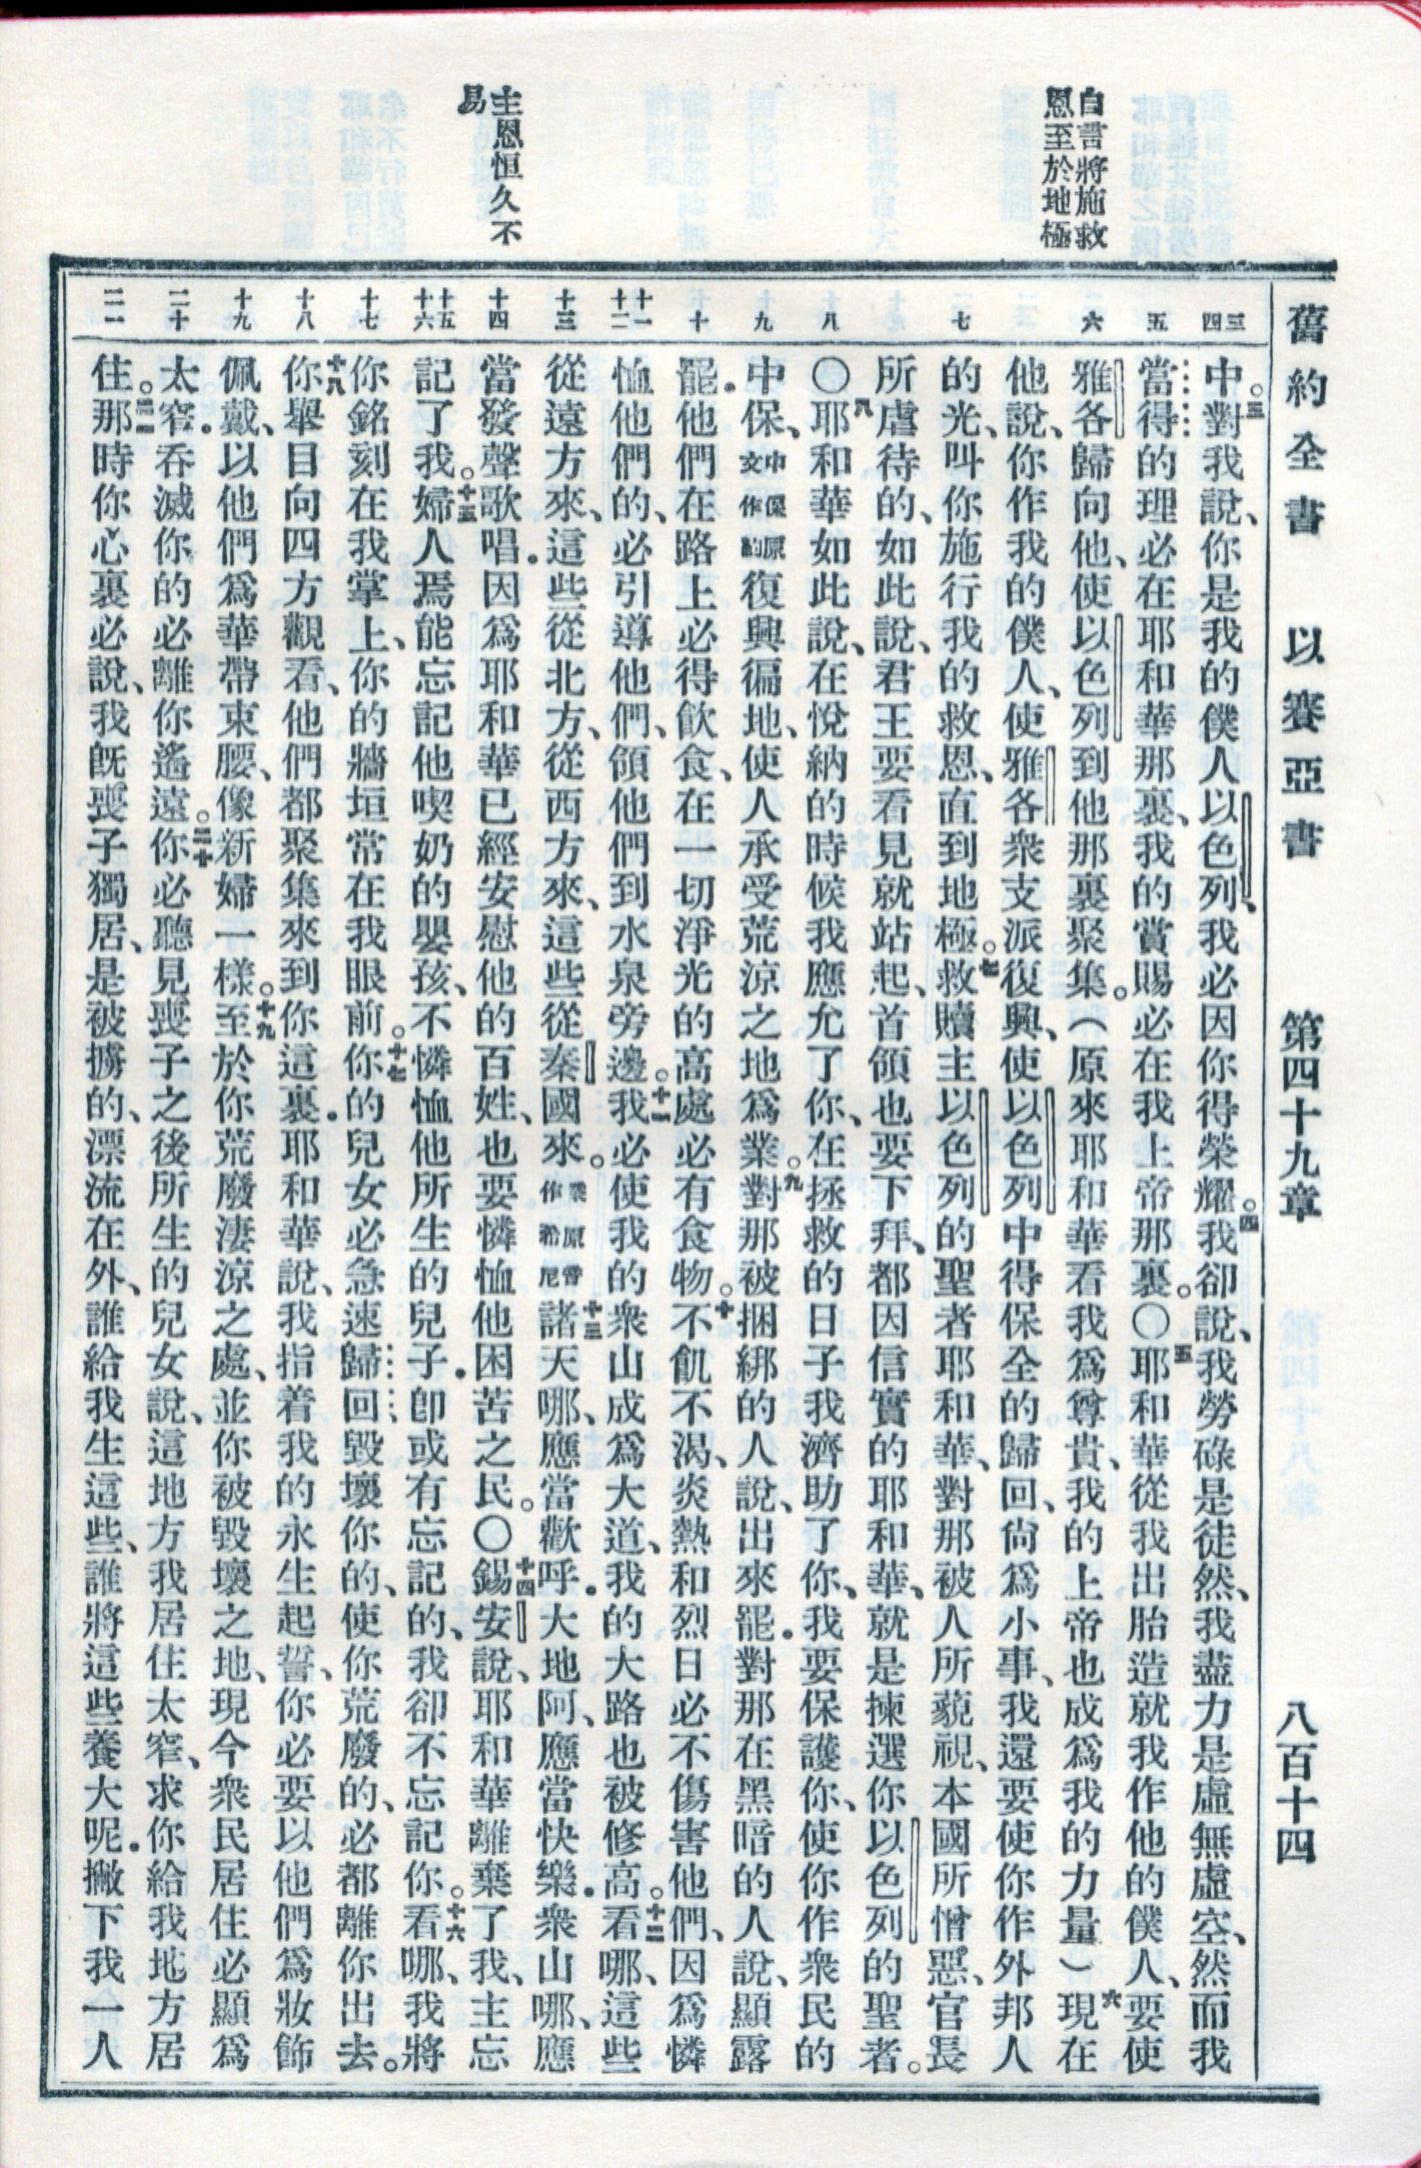 舊約全書　以賽亞書　第四十九章　八百十四
自言將施救
恩至於地極
主恩恒久不
易
三
四
五
六
七
八
九
十
十一
十二
十三
十四
十五
十六
十七
十八
十九
二十
二一
中。三對我說、你是我的僕人以色列、我必因你得榮耀。四我卻說、我勞碌是徒然、我盡力是虛無虛空、然而我
當得的理必在耶和華那裏、我的賞賜必在我上帝那裏。〇五耶和華從我出胎造就我作他的僕人、要使
雅各歸向他、使以色列到他那裏聚集。（原來耶和華看我爲尊貴、我的上帝也成爲我的力量）六現在
他說、你作我的僕人、使雅各衆支派復興、使以色列中得保全的歸回、尙爲小事、我還要使你作外邦人
的光、叫你施行我的救恩、直到地極。七救贖主以色列的聖者耶和華、對那被人所藐視、本國所憎惡、官長
所虐待的、如此說、君王要看見就站起、首領也要下拜、都因信實的耶和華、就是揀選你以色列的聖者。
〇八耶和華如此說、在悅納的時候我應允了你、在拯救的日子我濟助了你、我要保護你、使你作衆民的
中保、中保原文作約復興徧地、使人承受荒涼之地爲業。九對那被捆綁的人說、出來罷．對那在黑暗的人說、顯露
罷．他們在路上必得飮食、在一切淨光的高處必有食物。十不飢不渴、炎熱和烈日必不傷害他們、因爲憐
恤他們的、必引導他們、領他們到水泉旁邊。十一我必使我的衆山成爲大道、我的大路也被修高。十二看哪、這些
從遠方來、這些從北方、從西方來、這些從秦國來。秦原書作希尼十三諸天哪、應當歡呼．大地阿、應當快樂．衆山哪、應
當發聲歌唱．因爲耶和華已經安慰他的百姓、也要憐恤他困苦之民。〇十四錫安說、耶和華離棄了我、主忘
記了我。十五婦人焉能忘記他喫奶的嬰孩、不憐恤他所生的兒子．卽或有忘記的、我卻不忘記你。十六看哪、我將
你銘刻在我掌上、你的牆垣常在我眼前。十七你的兒女必急速歸回、毀壞你的、使你荒廢的、必都離你出去。
十八你舉目向四方觀看、他們都聚集來到你這裏．耶和華說、我指着我的永生起誓、你必要以他們爲妝飾
佩戴、以他們爲華帶束腰、像新婦一樣。十九至於你荒廢凄涼之處、並你被毀壞之地、現今衆民居住必顯爲
太窄．吞滅你的必離你遙遠。二十你必聽見喪子之後所生的兒女說、這地方我居住太窄、求你給我地方居
住。二一那時你心裏必說、我旣喪子獨居、是被擄的、漂流在外、誰給我生這些、誰將這些養大呢．撇下我一人